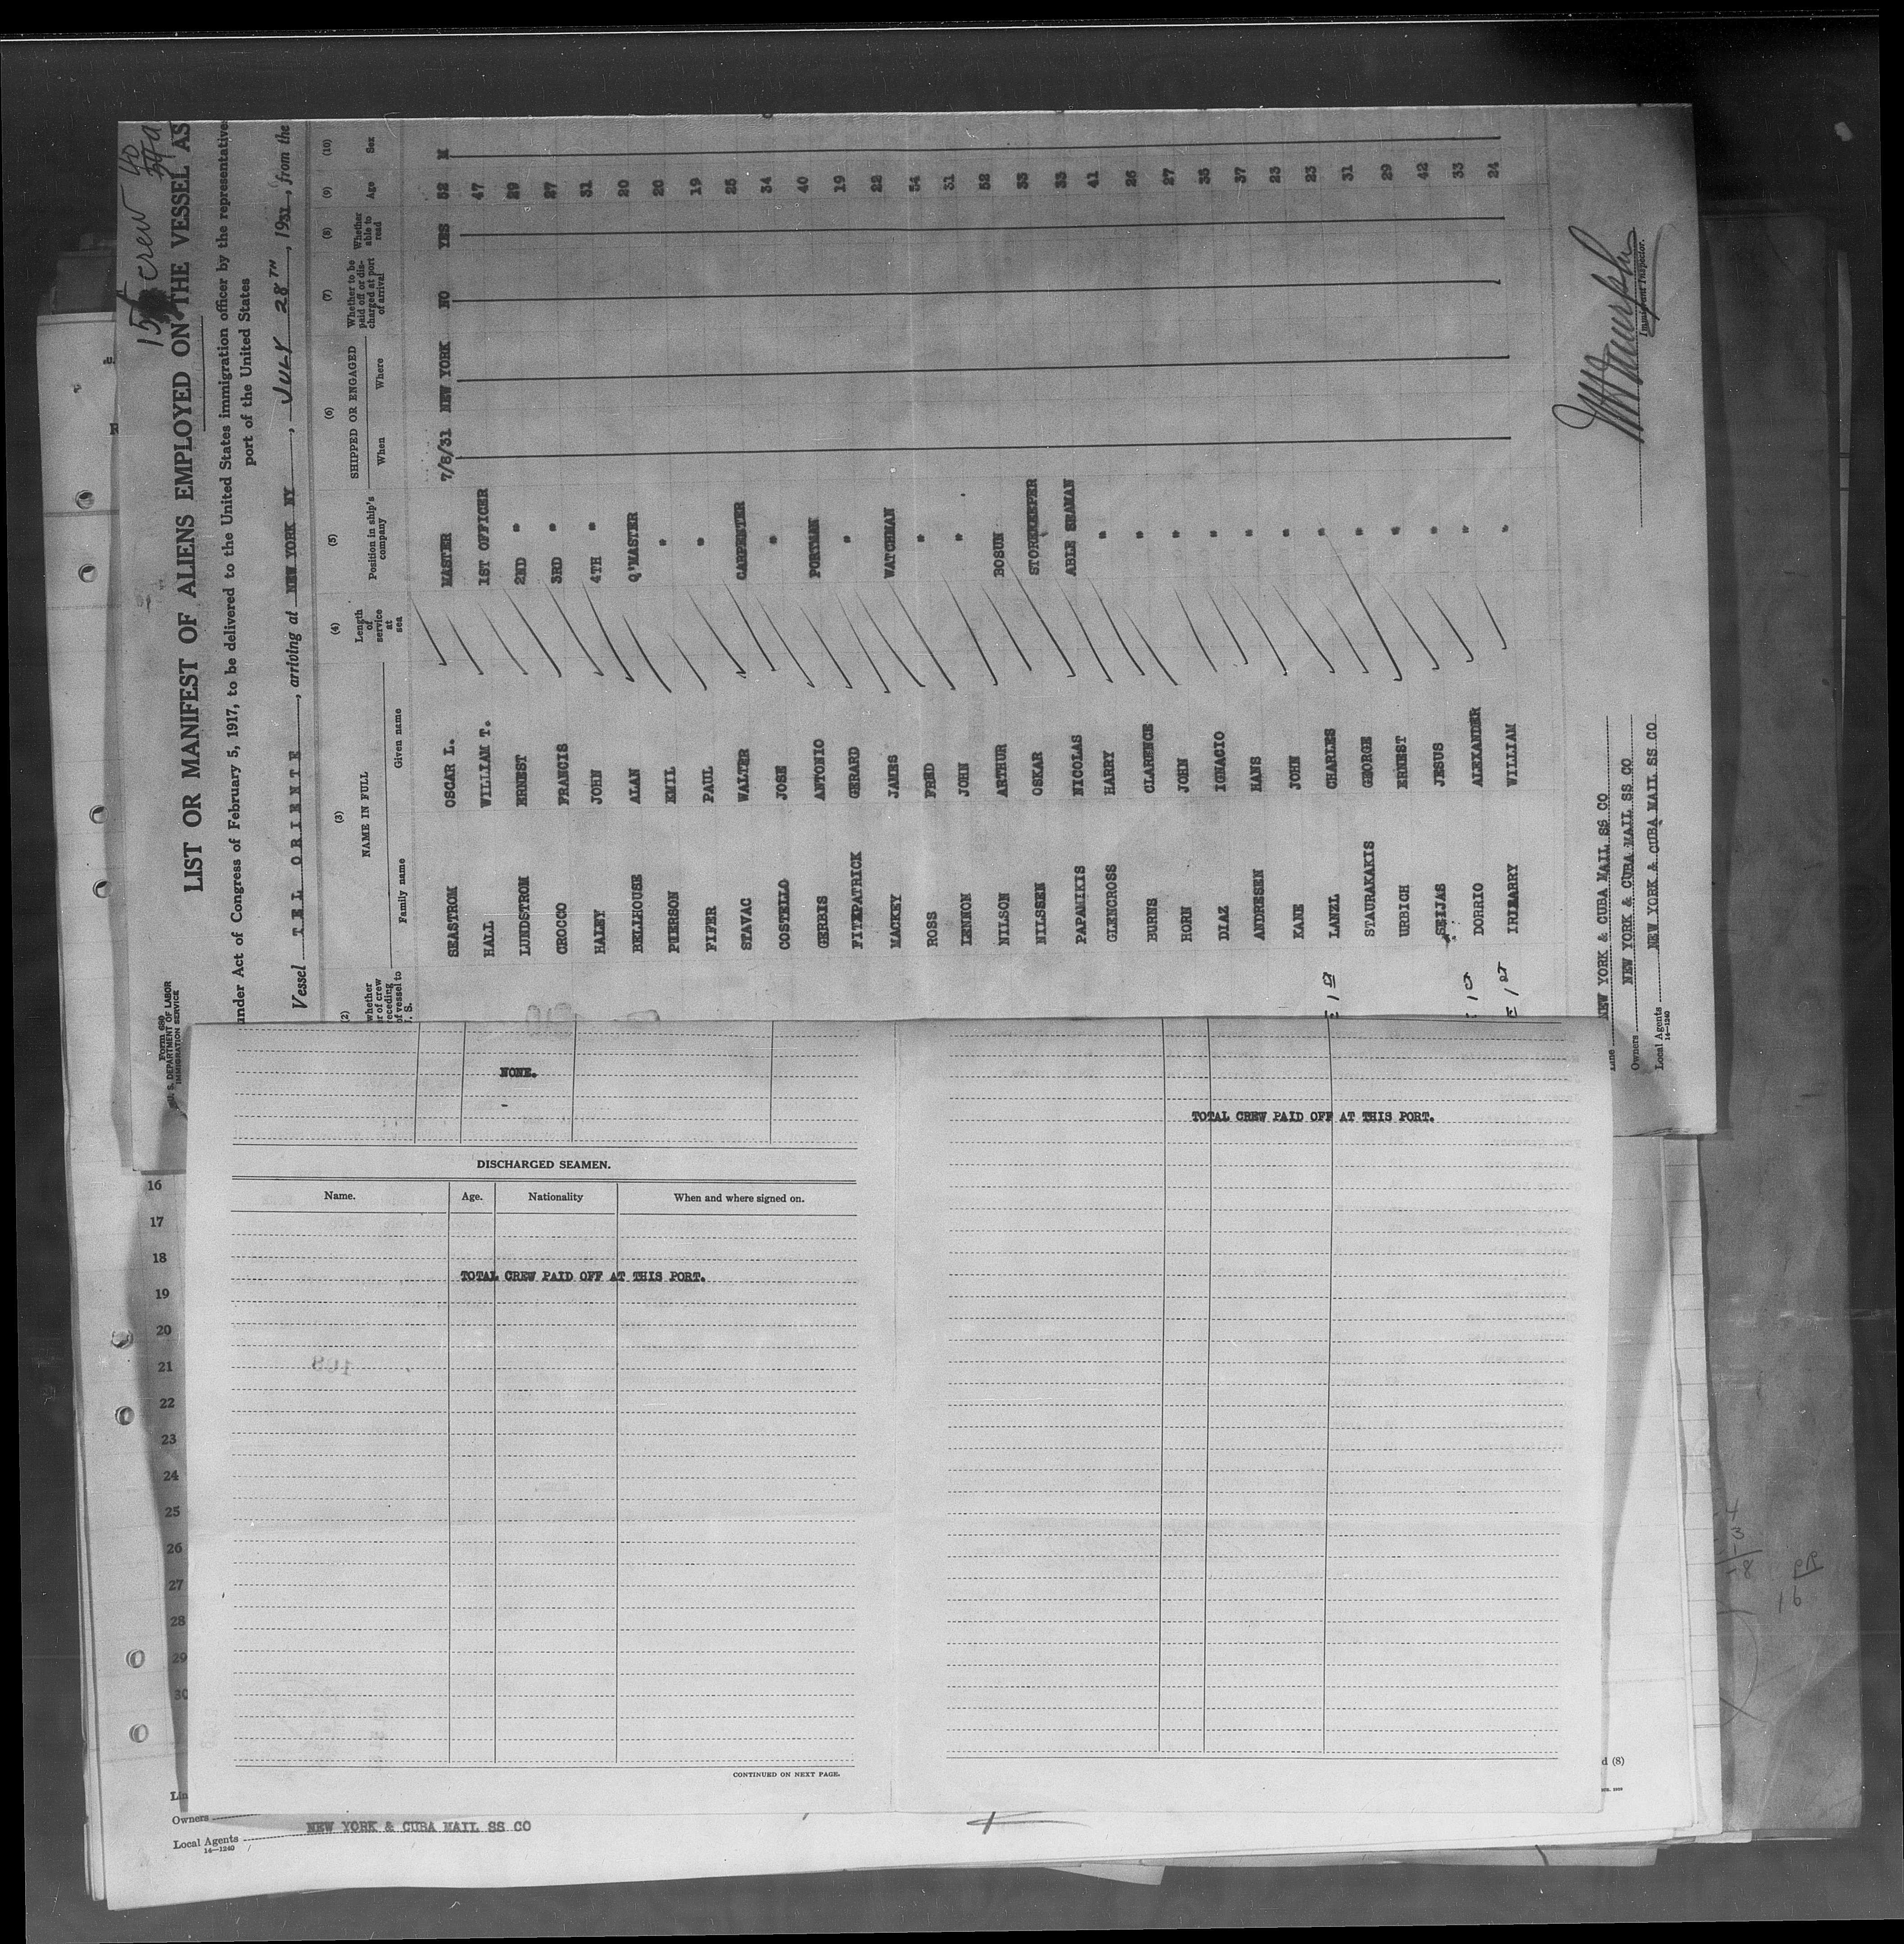 15 crew
Form 680
U. S. DEPARTMENT OF LABOR
IMMIGRATION SERVICE
LIST OR MANIFEST OF ALIENS EMPLOYED ON THE VESSEL AS
under Act of Congress of February 5, 1917, to be delivered to the United States immigration officer by the representative
port of the United States
Vessel TEL ORIENTE, arriving at NEW YORK NY, JULY 28TH, 1931, from the
(2) (3) (4) (5) (6) (7) (8) (9) (10)
whether
r of crew
receding
of vessel to
U. S.
NAME IN FULL
Family name Given name
Length of service at sea
Position in ship's company
SHIPPED OR ENGAGED
When Where
Whether to be paid off or discharged at port of arrival
Whether able to read
Age
Sex
SEASTROM OSCAR L. MASTER 7/8/31 NEW YORK NO YES 52 M
HALL WILLIAM T. 1ST OFFICER 47
LUNDSTROM ERNEST 2ND " 29
CROCCO FRANCIS 3RD " 27
HALEY JOHN 4TH " 31
BELLHOUSE ALAN Q'MASTER 20
PIERSON EMIL " 20
FIFER PAUL " 19
STAVAC WALTER CARPENTER 25
COSTELLO JOSE " 34
GERBIS ANTONIO PORTMAN 40
FITZPATRICK GERARD " 19
MACKEY JAMES WATCHMAN 22
ROSS FRED " 54
LENNON JOHN " 31
NILSON ARTHUR BOSUN 52
NILSSEN OSKAR STOREKEEPER 33
PAPAMIKIS NICOLAS ABLE SEAMAN 33
GLENCROSS HARRY " 41
BURNS CLARENCE " 26
HORN JOHN " 27
DIAZ IGNACIO " 35
ANDRESEN HANS " 37
KANE JOHN " 23
LANZL CHARLES " 23
STAURAKAKIS GEORGE " 31
URBICH ERNEST " 29
SEIJAS JESUS " 42
DORRIO ALEXANDER " 33
IRIBARRY WILLIAM " 24
Line NEW YORK & CUBA MAIL SS CO
Owners NEW YORK & CUBA MAIL SS CO
Local Agents NEW YORK & CUBA MAIL SS CO
14—1240
Immigrant Inspector.
NONE.
DISCHARGED SEAMEN.
Name. Age. Nationality When and where signed on.
TOTAL CREW PAID OFF AT THIS PORT.
CONTINUED ON NEXT PAGE.
TOTAL CREW PAID OFF AT THIS PORT.
16
17
18
19
20
21
22
23
24
25
26
27
28
29
30
Lin
Owners
Local Agents NEW YORK & CUBA MAIL SS CO
14—1240
d (8)
16